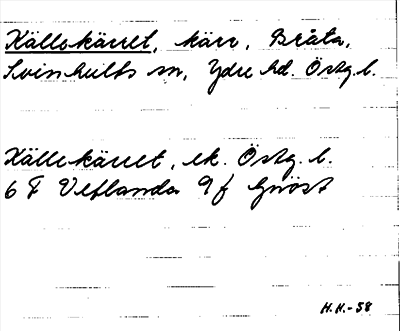 Källekärret, kärr, Bråta,
Svinhults sn, Ydre hd. Östg. l.
Källekärret, ek. Östg. l.
6 F Vetlanda 9 f Gnöst
H.H. - 58